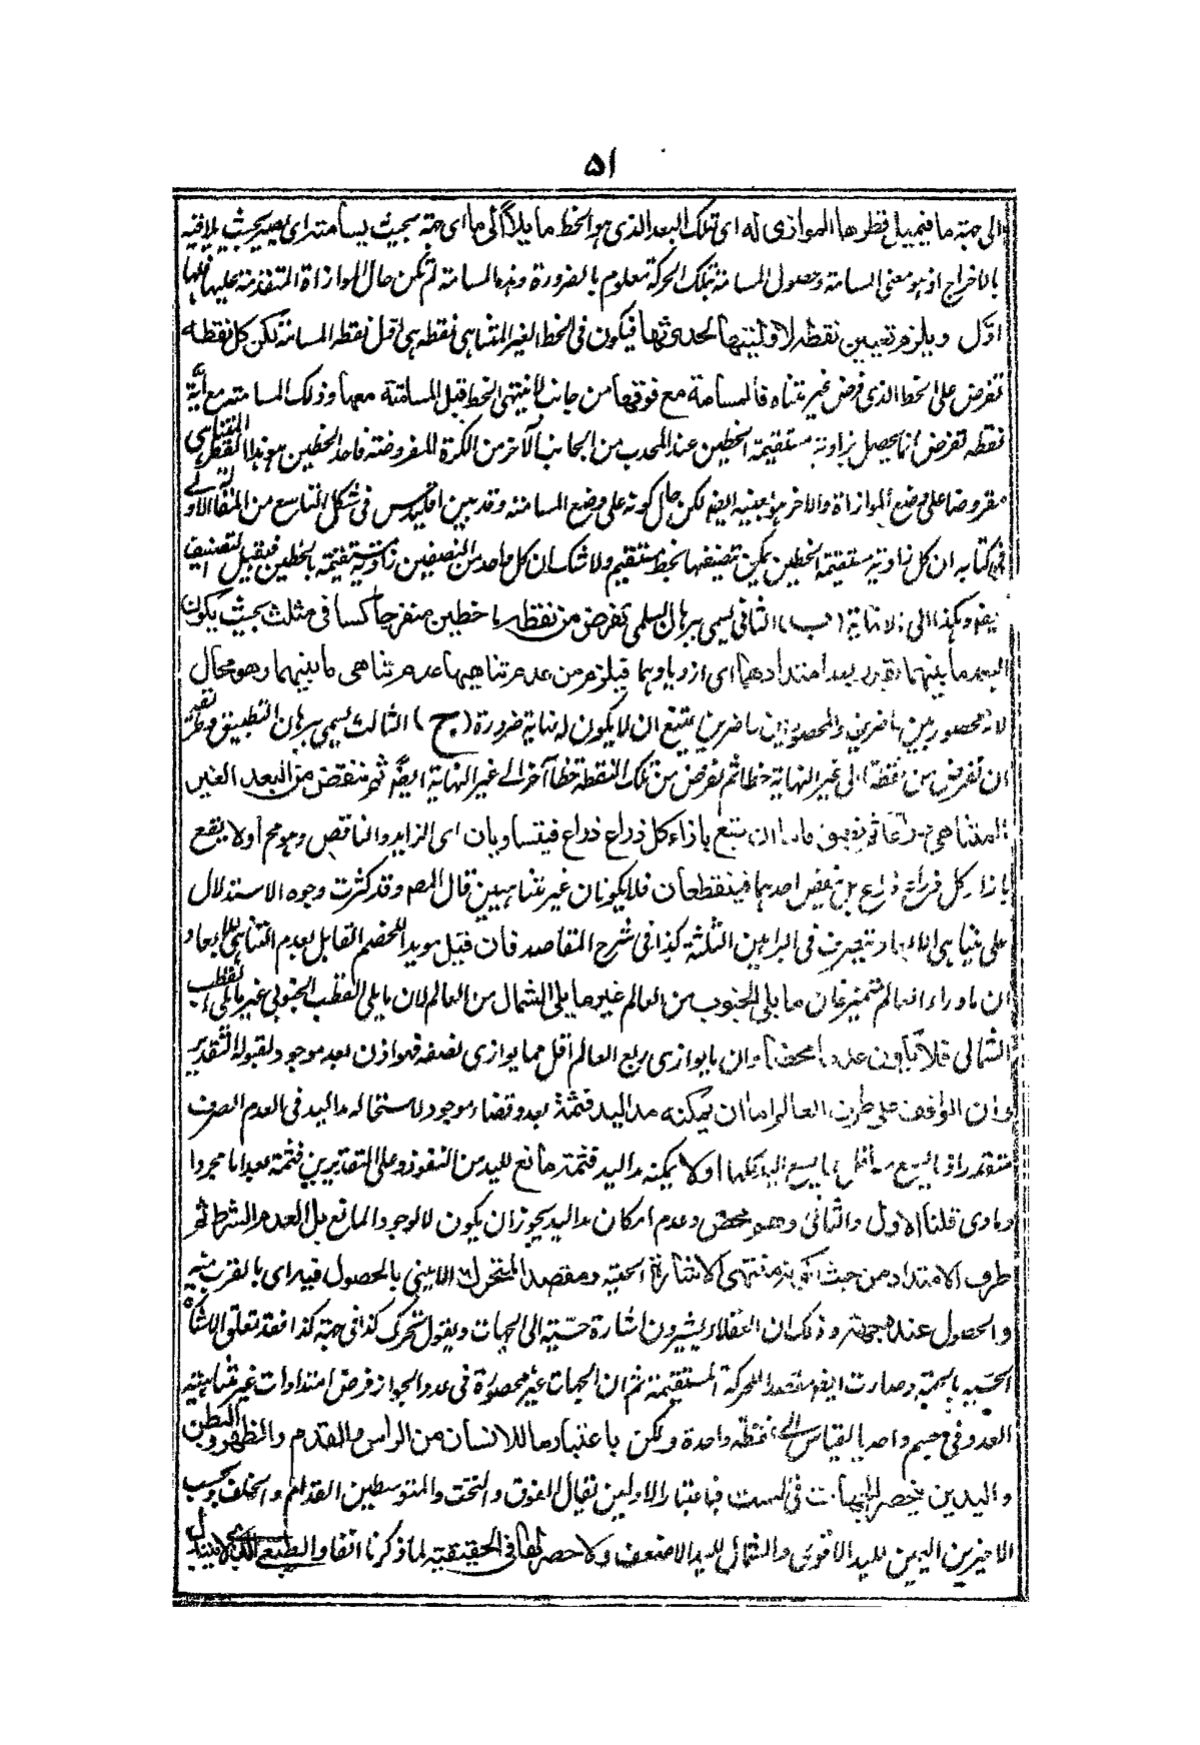 ٥١
الى جهة ما فيميل قطرها الموازى له اى تلك البعد الذى هو الخط ما يلا الى ما اى جهة بحيث يسامته اى يصير بحيث يلاقيه
بالاخراج اذ هو معنى المسامتة وحصول المسامتة بتلك الحركة معلوم بالضرورة وهذه المسامتة لم تكن حال الموازاة المتقدمة عليها فلها
اوّل ويلزم تعيين نقطة لاوليتها لحدوثها فيكون فى الخط الغير المتناهى نقطة هى اول نقطة المسامتة لكن كل نقطة
تفرض على الخط الذى فرض غير متناه فالمسامتة مع فوقها من جانب لا ينتهى الخط قبل المسامتة معها وذلك المسامتة مع اية
نقطة تفرض انما يحصل بزاوية مستقيمة الخطين عند المحدب من الجانب الآخر من الكرة المفروضة فاحد الخطين هو هذا القطر
مفروضا على وضع الموازاة والاخر هو بعينه ايضا لكن حال كونه على وضع المسامتة وقد بين اقليدس فى شكل التاسع من المقالة الاولى
فى كتابه ان كل زاوية مستقيمة الخطين يمكن تنصيفها بخط مستقيم ولا شك ان كل واحد من النصفين زاوية مستقيمة بالخطين فيقبل التصنيف
ايضا وهكذا الى لا نهاية (ب) الثانى يسمى ببرهان السلمى تفرض من نقطة ما خطين منفرجا كساقى مثلث بحيث يكون
البعد ما بينهما بقدر بعد امتدادهما اى ازديادهما فيلزم من عدم تناهيهما عدم تناهى ما بينهما وهو محال
لانه محصور بين حاصرين والمحصور بين حاصرين يمتنع ان لا يكون له نهاية ضرورة (ج) الثالث يسمى ببرهان التطبيق وتقريره
ان تفرض من نقطة الى غير النهاية خطا ثم نفرض من تلك النقطة خطا آخر الى غير النهاية ايضا ثم ننقص من البعد الغير
المتناهى ذراعا ثم نطبق فاما ان يقع بازاء كل ذراع ذراع فيتساويان اى الزايد والناقص وهو مح اولا يقع
بازاء كل ذراع ذراع بل نقص احدهما فينقطعان فلا يكونان غير متناهيين قال المص وقد كثرت وجوه الاستدلال
على تناهى الابعاد بتصرف فى البراهين الثلثة كذا فى شرح المقاصد فان قيل مويدا للخصم القايل بعدم التناهى للابعاد
ان ما وراء العالم متميز فان ما يلى الجنوب من العالم غير ما يلى الشمال من العالم لان ما يلى القطب الجنوبى غير ما يلى القطب
الشمالى فلا يكون عدما محضا وان ما يوازى ربع العالم اقل مما يوازى نصفه فهو اذن بعد موجود لقبوله التقدير
وان الواقف على طرف العالم اما ان يمكنه مد اليد فثمة بعد وفضاء موجود لاستحالة مد اليد فى العدم الصرف
متقدر اذ ما يسع اقل ما يسع اليد كلها اولا يمكنه مد اليد فثمة مانع لليد من النفوذ وعلى التقديرين فثمة بعد اما مجرد او
مادى قلنا الاول والثانى وهم محض وعدم امكان مد اليد يجوز ان يكون لا لوجود المانع بل لعدم الشرط ثم
طرف الامتداد من حيث انه منتهى الاشارة الحسية ومقصد المتحرك الاينى بالحصول فيه اى بالقرب منه
والحصول عنده جهة وذلك ان العقلاء يشيرون اشارة حسّية الى الجهات ويقول تتحرك كذا فى جهة كذا فقد تعلق الاشارة
الحسّيه بالجهة وصارت ايضا مقصدا للحركة المستقيمة ثم ان الجهات غير محصورة فى عدد لجواز فرض امتدادات غير متناهيته
العدد فى جسم واحد بالقياس الى نقطة واحدة ولكن باعتبار ما للانسان من الراس والقدم والظهر والبطن
واليدين ينحصر الجهات فى الست فباعتبار الاولين يقال الفوق والتحت والمتوسطين القدام والخلف وبحسب
الاخيرين اليمين لليد الاقوى والشمال لليد الاضعف ولا حصر لها فى الحقيقية لما ذكرنا انفا والطبعى الذى لا يتبدل